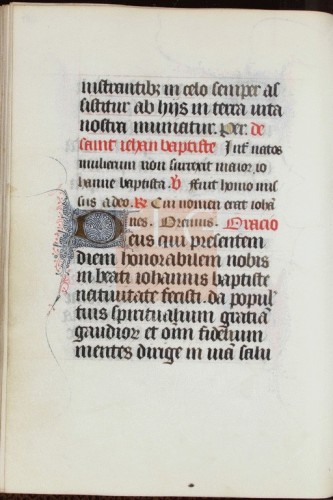 nistrantibz in celo semper as
sistitur ab hijs in terra uita
nostra muniatur. Per. de
saint iehan baptiste Int̃ natos
mulierum non surrexit maior io
hanne baptista. V̷ ffuit homo mis
sus a deo. R̷ Cui nomen erat iohã
nes. Oremus. Oracio
Deus qui presentem
diem honorabilem nobis
in beati iohannis baptiste
natiuitate fecisti. da popul
tuis spiritualium gratiã
gaudior et om̃ fidelium
mentes dirige in uiã salu